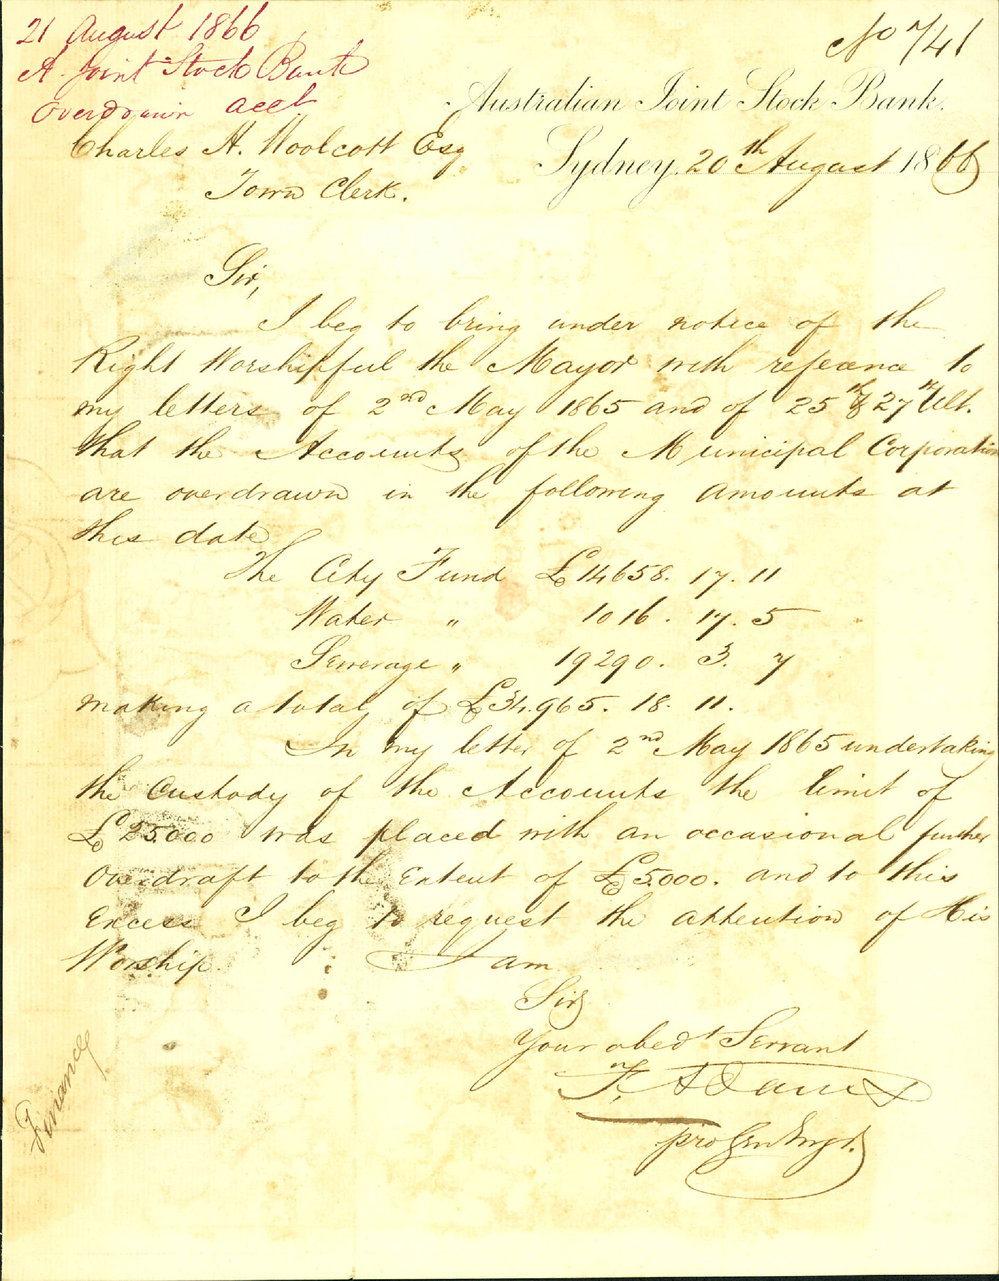 21 August 1866
A. Joint Stock Bank
Overdrawn acct
No 741
Australian Joint Stock Bank.
Sydney, 20th August 1866
Charles H. Woolcott Esq
Town Clerk.
Sir,
I beg to bring under notice of the
Right Worshipful the Mayor with reference to
my letters of 2nd May 1865 and of 25th & 27th Ult.
that the Accounts of the Municipal Corporation
are overdrawn in the following amounts at
this date
The City Fund £14658. 17. 11
Water " 1016. 17. 5
Sewerage " 19290. 3. 7
making a total of £34,965. 18. 11.
In my letter of 2nd May 1865 undertaking
the Custody of the Accounts the limit of
£25.000 was placed with an occasional further
Overdraft to the Extent of £5.000. and to this
Excess I beg to request the attention of His
Worship.
I am
Sir
Your obedt Servant
F. Adams
pro Gen Mngr.
Finance